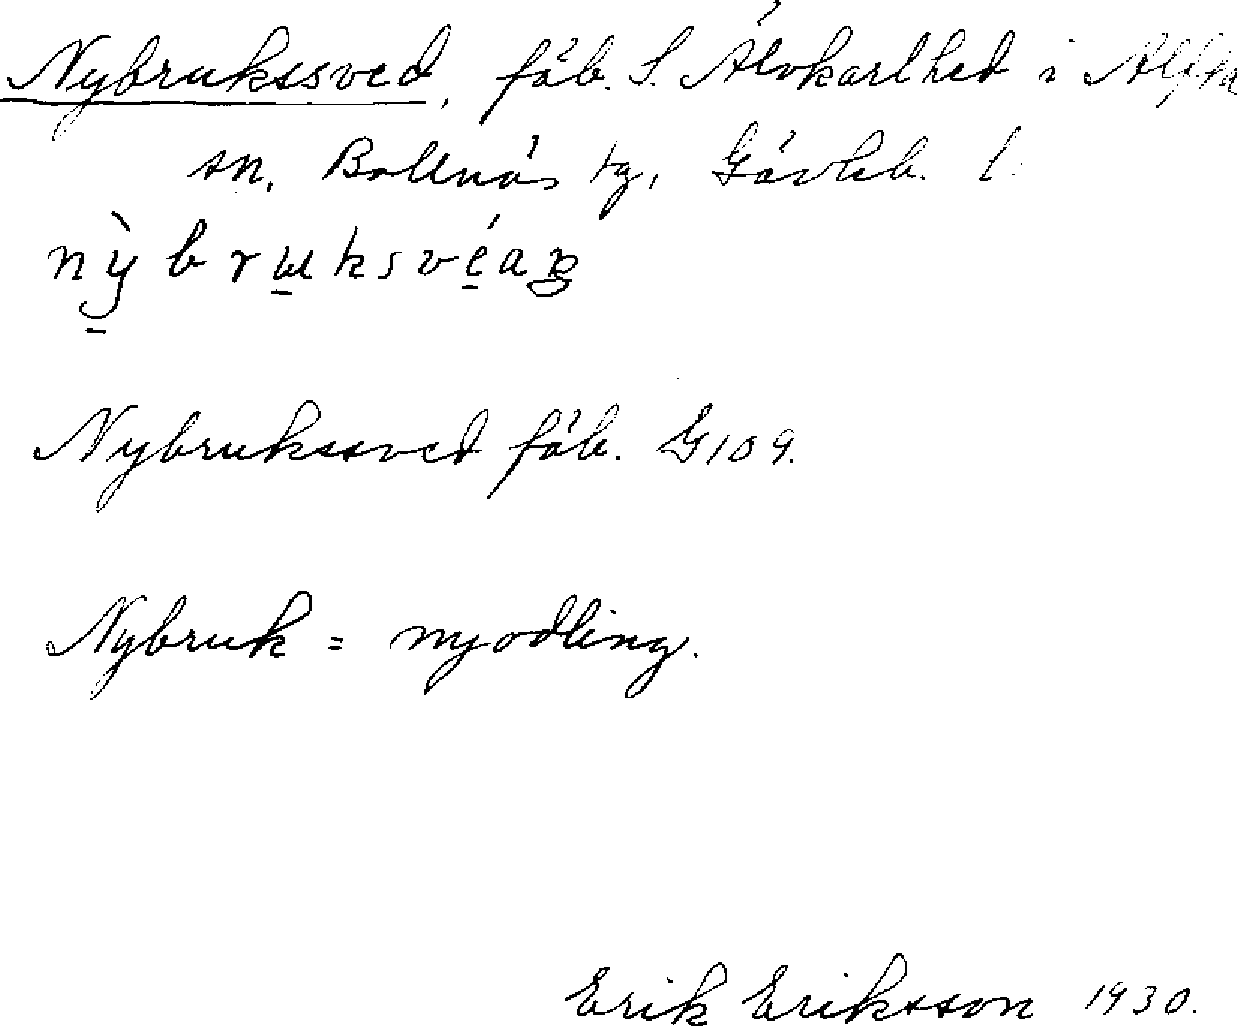 Nybrukssved, fäb. S. Älvkarlhed i Alfta
sn, Bollnäs tg, Gävleb. l.
nỳbruksvéaꞃ
Nybrukssved fäb. G109.
Nybruk = nyodling.
Erik Eriksson 1930.